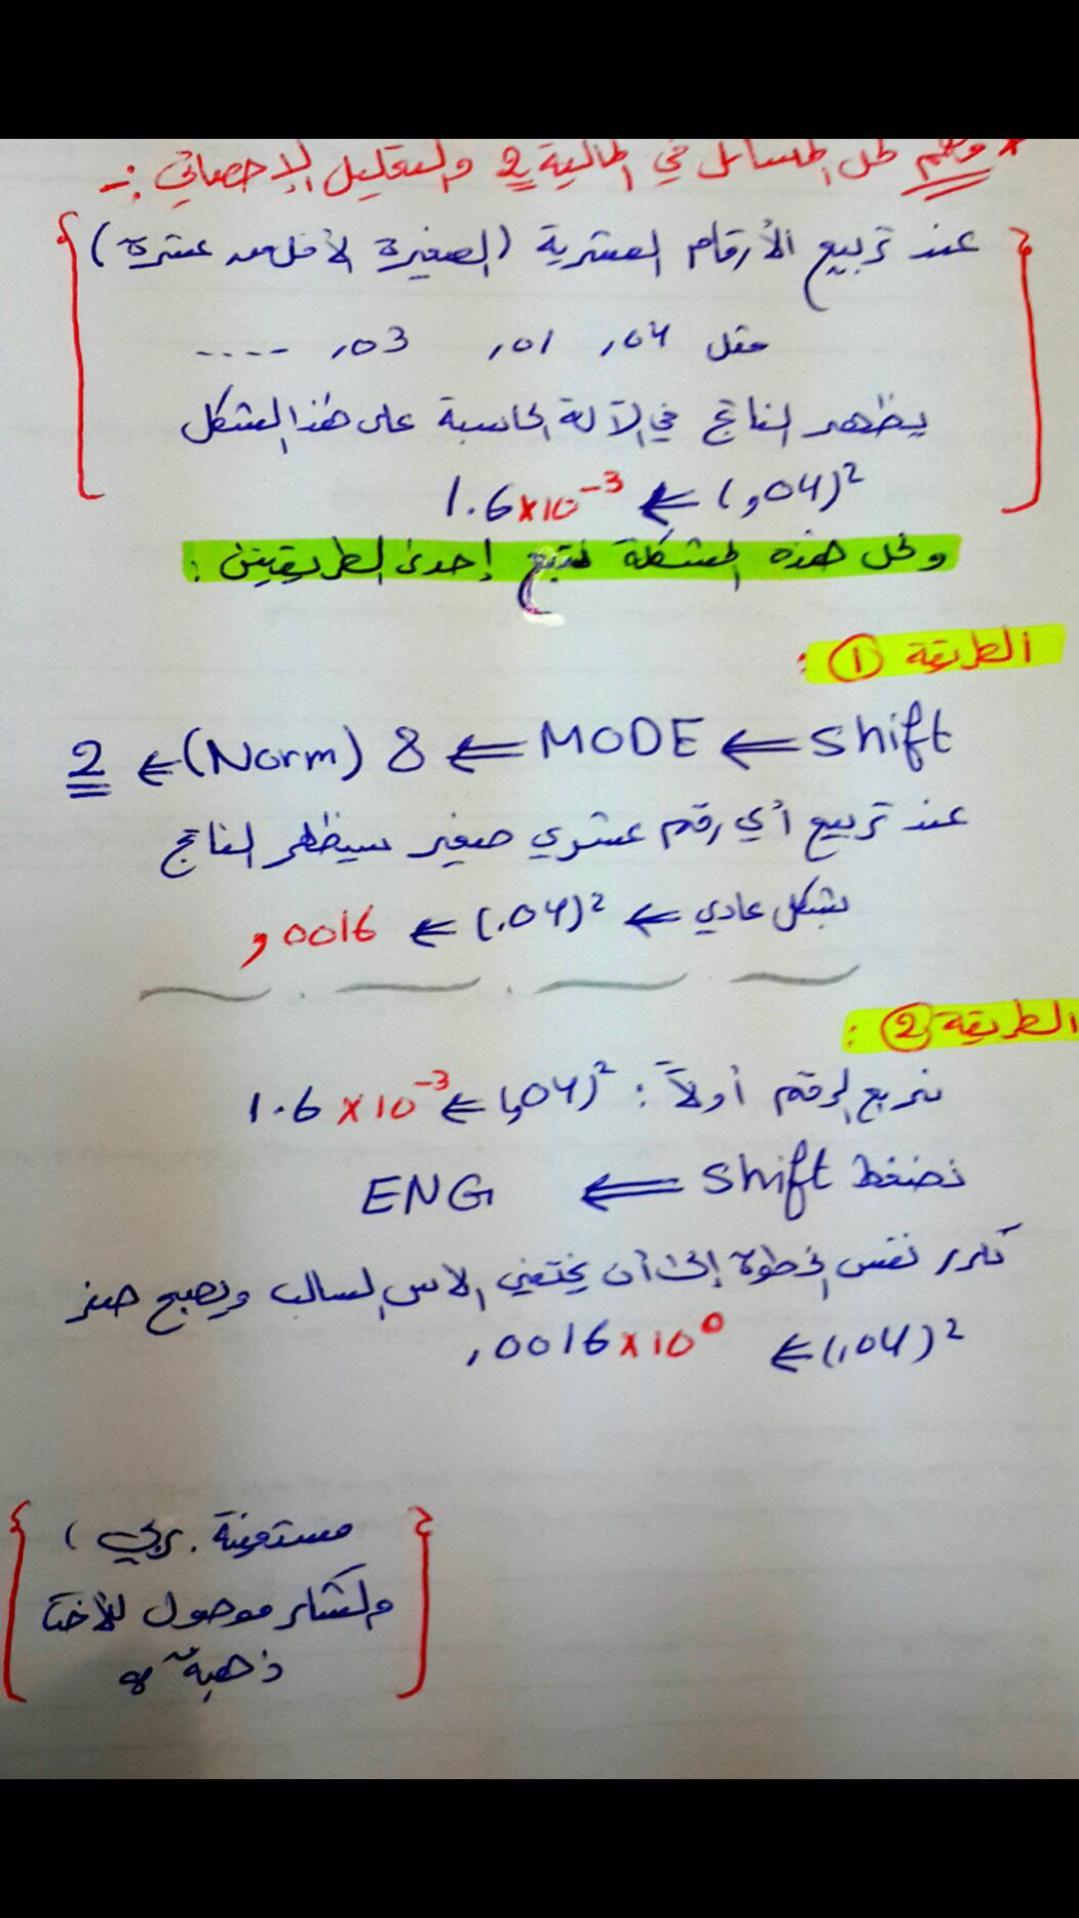 * مهم لحل المسائل في المالية 2 والتحليل الإحصائي :-
عند تربيع الأرقام العشرية (الصغيرة الأقل من عشرة)
مثل 04, 01, 03, ....
يظهر الناتج في الآلة الحاسبة على هذا الشكل
(,04)² ⇐ 1.6×10⁻³
ولحل هذه المشكلة نتبع إحدى الطريقتين :
الطريقة ① :
Shift ⇐ MODE ⇐ 8 (Norm) ← 2
عند تربيع أي رقم عشري صغير سيظهر الناتج
بشكل عادي ⇐ (.04)² ⇐ ,0016
الطريقة ② :
نربع الرقم أولاً : (,04)² ⇐ 1.6 × 10⁻³
نضغط Shift ⇐ ENG
نكرر نفس الخطوة إلى أن يختفي الاس السالب ويصبح صفر
(,04)² ⇐ ,0016×10⁰
مستعينة بربي ،
والشكر موصول للأخت
ذهبة